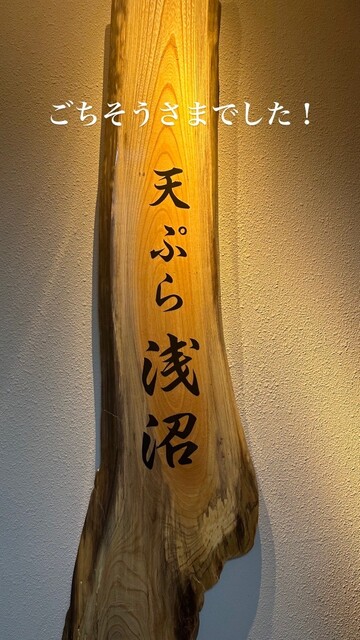 ごちそうさまでした！
天ぷら浅沼